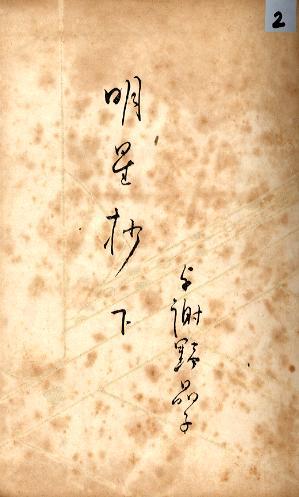 2
明星抄 下
与謝野晶子